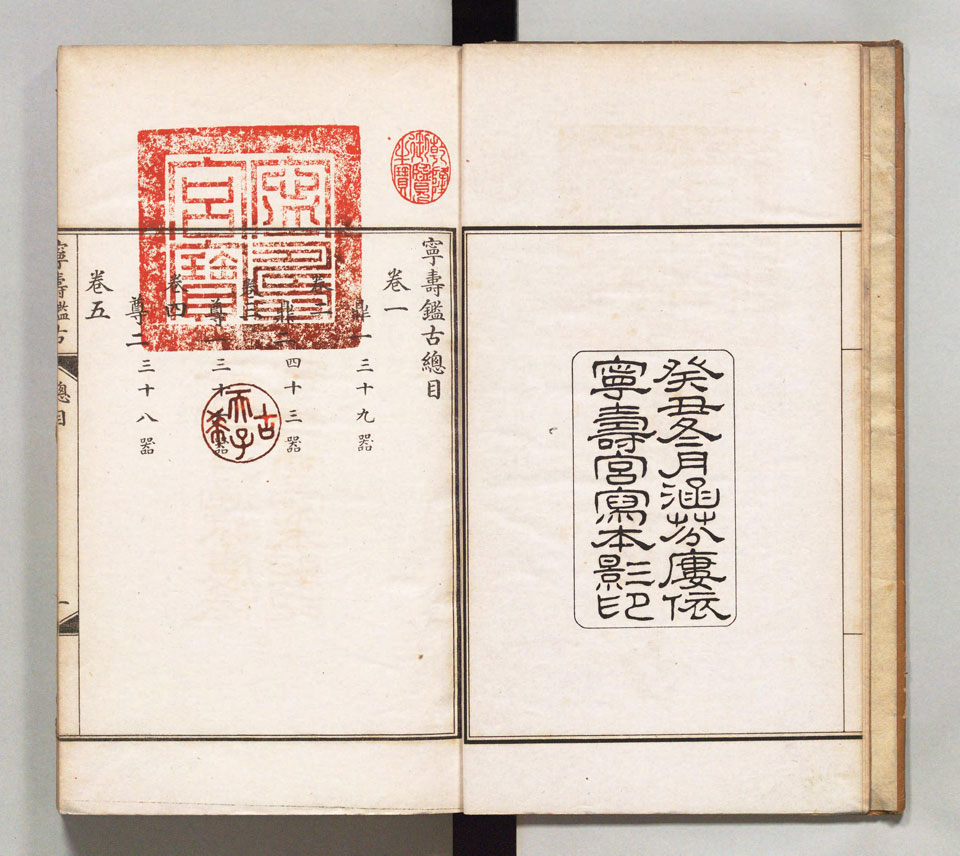 癸丑冬月涵芬廔依
寧壽宮寫本影印
乾隆御覽之寶
寧壽宮寶
寧壽鑑古總目
卷一
鼎一 三十九器
卷二
鼎二 四十三器
卷三
尊一 三十 器
卷四
尊二 三十八器
卷五
古希天子
寧壽鑑古 總目 一